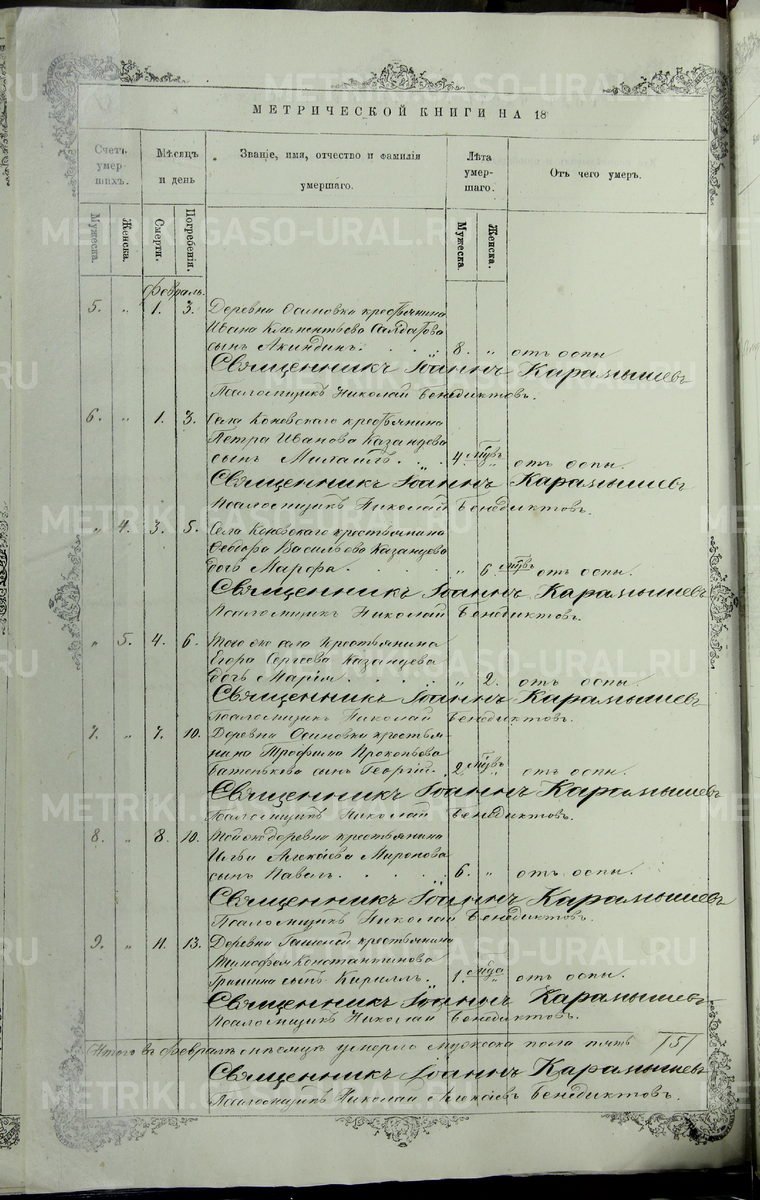 МЕТРИЧЕСКОЙ КНИГИ НА 18
Счетъ умерших.
Мѣсяцъ и день
Званіе, имя, отчество и фамилія умершаго.
Лѣта умершаго.
Отъ чего умеръ.
Мужеска. Женска. Смерти. Погребенія. Мужеска. Женска.
Февраль.
5. " 1. 3. Деревни Осиновки крестьянина
Ивана Климентьева
сынъ Акиндинъ. 8. " отъ оспы
Священникъ Іоаннъ Карамышевъ
Псаломщикъ Николай Бенедиктовъ.
6. " 1. 3. Села Коневскаго крестьянина
Петра Иванова Казанцева
сынъ Михаилъ. 4. мцвъ " отъ оспы.
Священникъ Іоаннъ Карамышевъ
Псаломщикъ Николай Бенедиктовъ.
" 4. 3. 5. Села Коневскаго крестьянина
Ѳеодора Васильева Казанцева
дочь Марѳа. " 6. мцвъ отъ оспы.
Священникъ Іоаннъ Карамышевъ
Псаломщикъ Николай Бенедиктовъ.
" 5. 4. 6. Того же села Крестьянина
Егора Сергѣева Казанцева
дочь Марія. " 2. отъ оспы.
Священникъ Іоаннъ Карамышевъ
Псаломщикъ Николай Бенедиктовъ.
7. " 7. 10. Деревни Осиновки крестья-
нина Трофима Прокопьева
сынъ Георгій. 2. мцвъ " отъ оспы.
Священникъ Іоаннъ Карамышевъ
Псаломщикъ Николай Бенедиктовъ.
8. " 8. 10. Той же деревни крестьянина
Ильи Алексѣева Миронова
сынъ Павелъ. 6. " отъ оспы.
Священникъ Іоаннъ Карамышевъ
Псаломщикъ Николай Бенедиктовъ.
9. " 11. 13. Деревни крестьянина
Константинова
сынъ Кириллъ. 1. года " отъ оспы.
Священникъ Іоаннъ Карамышевъ
Псаломщикъ Николай Бенедиктовъ.
Итого въ Февралѣ мѣсяцѣ умерло мужеска пола пять /5/
Священникъ Іоаннъ Карамышевъ
Псаломщикъ Николай Алексѣевъ Бенедиктовъ.
METRIKI.GASO-URAL.RU